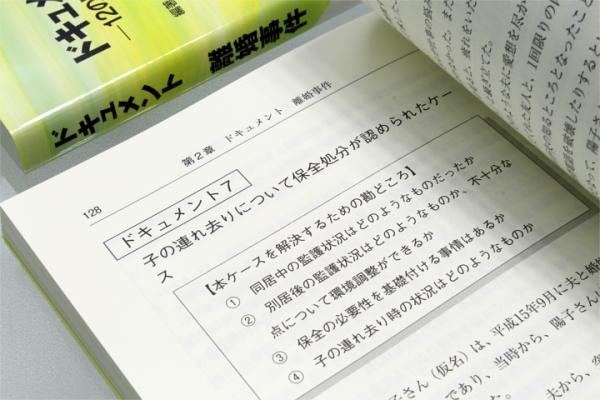 ドキュメント 離婚事件
―120
第2章 ドキュメント 離婚事件
128
ドキュメント7
子の連れ去りについて保全処分が認められたケー
ス
【本ケースを解決するための勘どころ】
① 同居中の監護状況はどのようなものだったか
② 別居後の監護状況はどのようなものか、不十分な
点について環境調整ができるか
③ 保全の必要性を基礎付ける事情はあるか
④ 子の連れ去り時の状況はどのようなものか
子さん(仮名)は、平成15年9月に夫と婚
であり、当時から、陽子さん
夫から、